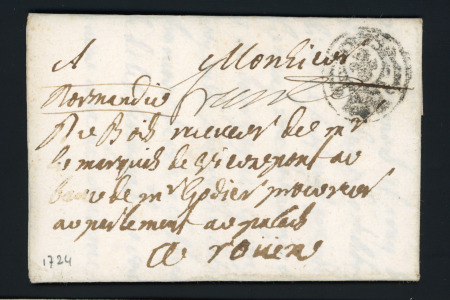 A Monsieur
Normandie
Du Bois receveur de mr
le marquis de au
de mr Godier procureur
au parlement au palais
a roüen
1724